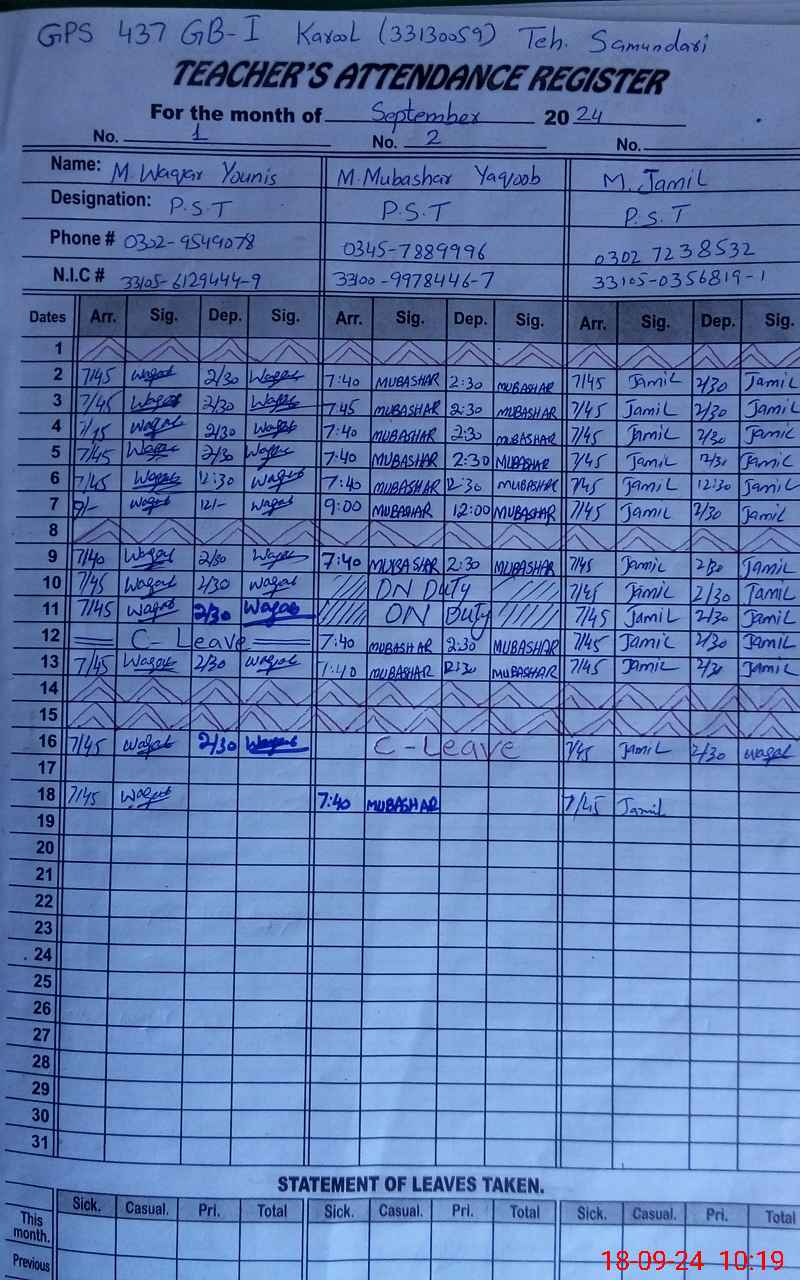 GPS 437 GB-I Karool (33130059) Teh. Samundari
TEACHER'S ATTENDANCE REGISTER
For the month of September 20 24
No. 1 No. 2 No.
Name: M. Waqar Younis M. Mubashar Yaqoob M. Jamil
Designation: P.S.T P.S.T P.S.T
Phone # 0302-9549078 0345-7889996 0302 7238532
N.I.C # 33105-6129444-9 33100-9978446-7 33105-0356819-1
Dates Arr. Sig. Dep. Sig. Arr. Sig. Dep. Sig. Arr. Sig. Dep. Sig.
1
2 7/45 Waqar 2/30 Waqar 7:40 MUBASHAR 2:30 MUBASHAR 7/45 Jamil 2/30 Jamil
3 7/45 Waqar 2/30 Waqar 7:45 MUBASHAR 2:30 MUBASHAR 7/45 Jamil 2/30 Jamil
4 7/45 Waqar 2/30 Waqar 7:40 MUBASHAR 2:30 MUBASHAR 7/45 Jamil 2/30 Jamil
5 7/45 Waqar 2/30 Waqar 7:40 MUBASHAR 2:30 MUBASHAR 7/45 Jamil Jamil
6 7/45 Waqar 12:30 Waqar 7:40 MUBASHAR 12:30 MUBASHAR 7/45 Jamil 12:30 Jamil
7 9/- Waqar 12/- Waqar 9:00 MUBASHAR 12:00 MUBASHAR 7/45 Jamil 2/30 Jamil
8
9 7/40 Waqar 2/30 Waqar 7:40 MUBASHAR 2:30 MUBASHAR 7/45 Jamil 2/30 Jamil
10 7/45 Waqar 2/30 Waqar ON Duty 7/45 Jamil 2/30 Jamil
11 7/45 Waqar 2/30 Waqar ON Duty 7/45 Jamil 2/30 Jamil
12 C-Leave 7:40 MUBASHAR 2:30 MUBASHAR 7/45 Jamil 2/30 Jamil
13 7/45 Waqar 2/30 Waqar 7:40 MUBASHAR 12:30 MUBASHAR 7/45 Jamil 2/30 Jamil
14
15
16 7/45 Waqar 2/30 Waqar C-Leave 7/45 Jamil 2/30 Waqar
17
18 7/45 Waqar 7:40 MUBASHAR 7/45 Jamil
19
20
21
22
23
24
25
26
27
28
29
30
31
STATEMENT OF LEAVES TAKEN.
Sick. Casual. Pri. Total Sick. Casual. Pri. Total Sick. Casual. Pri. Total
This month.
Previous
18-09-24 10:19